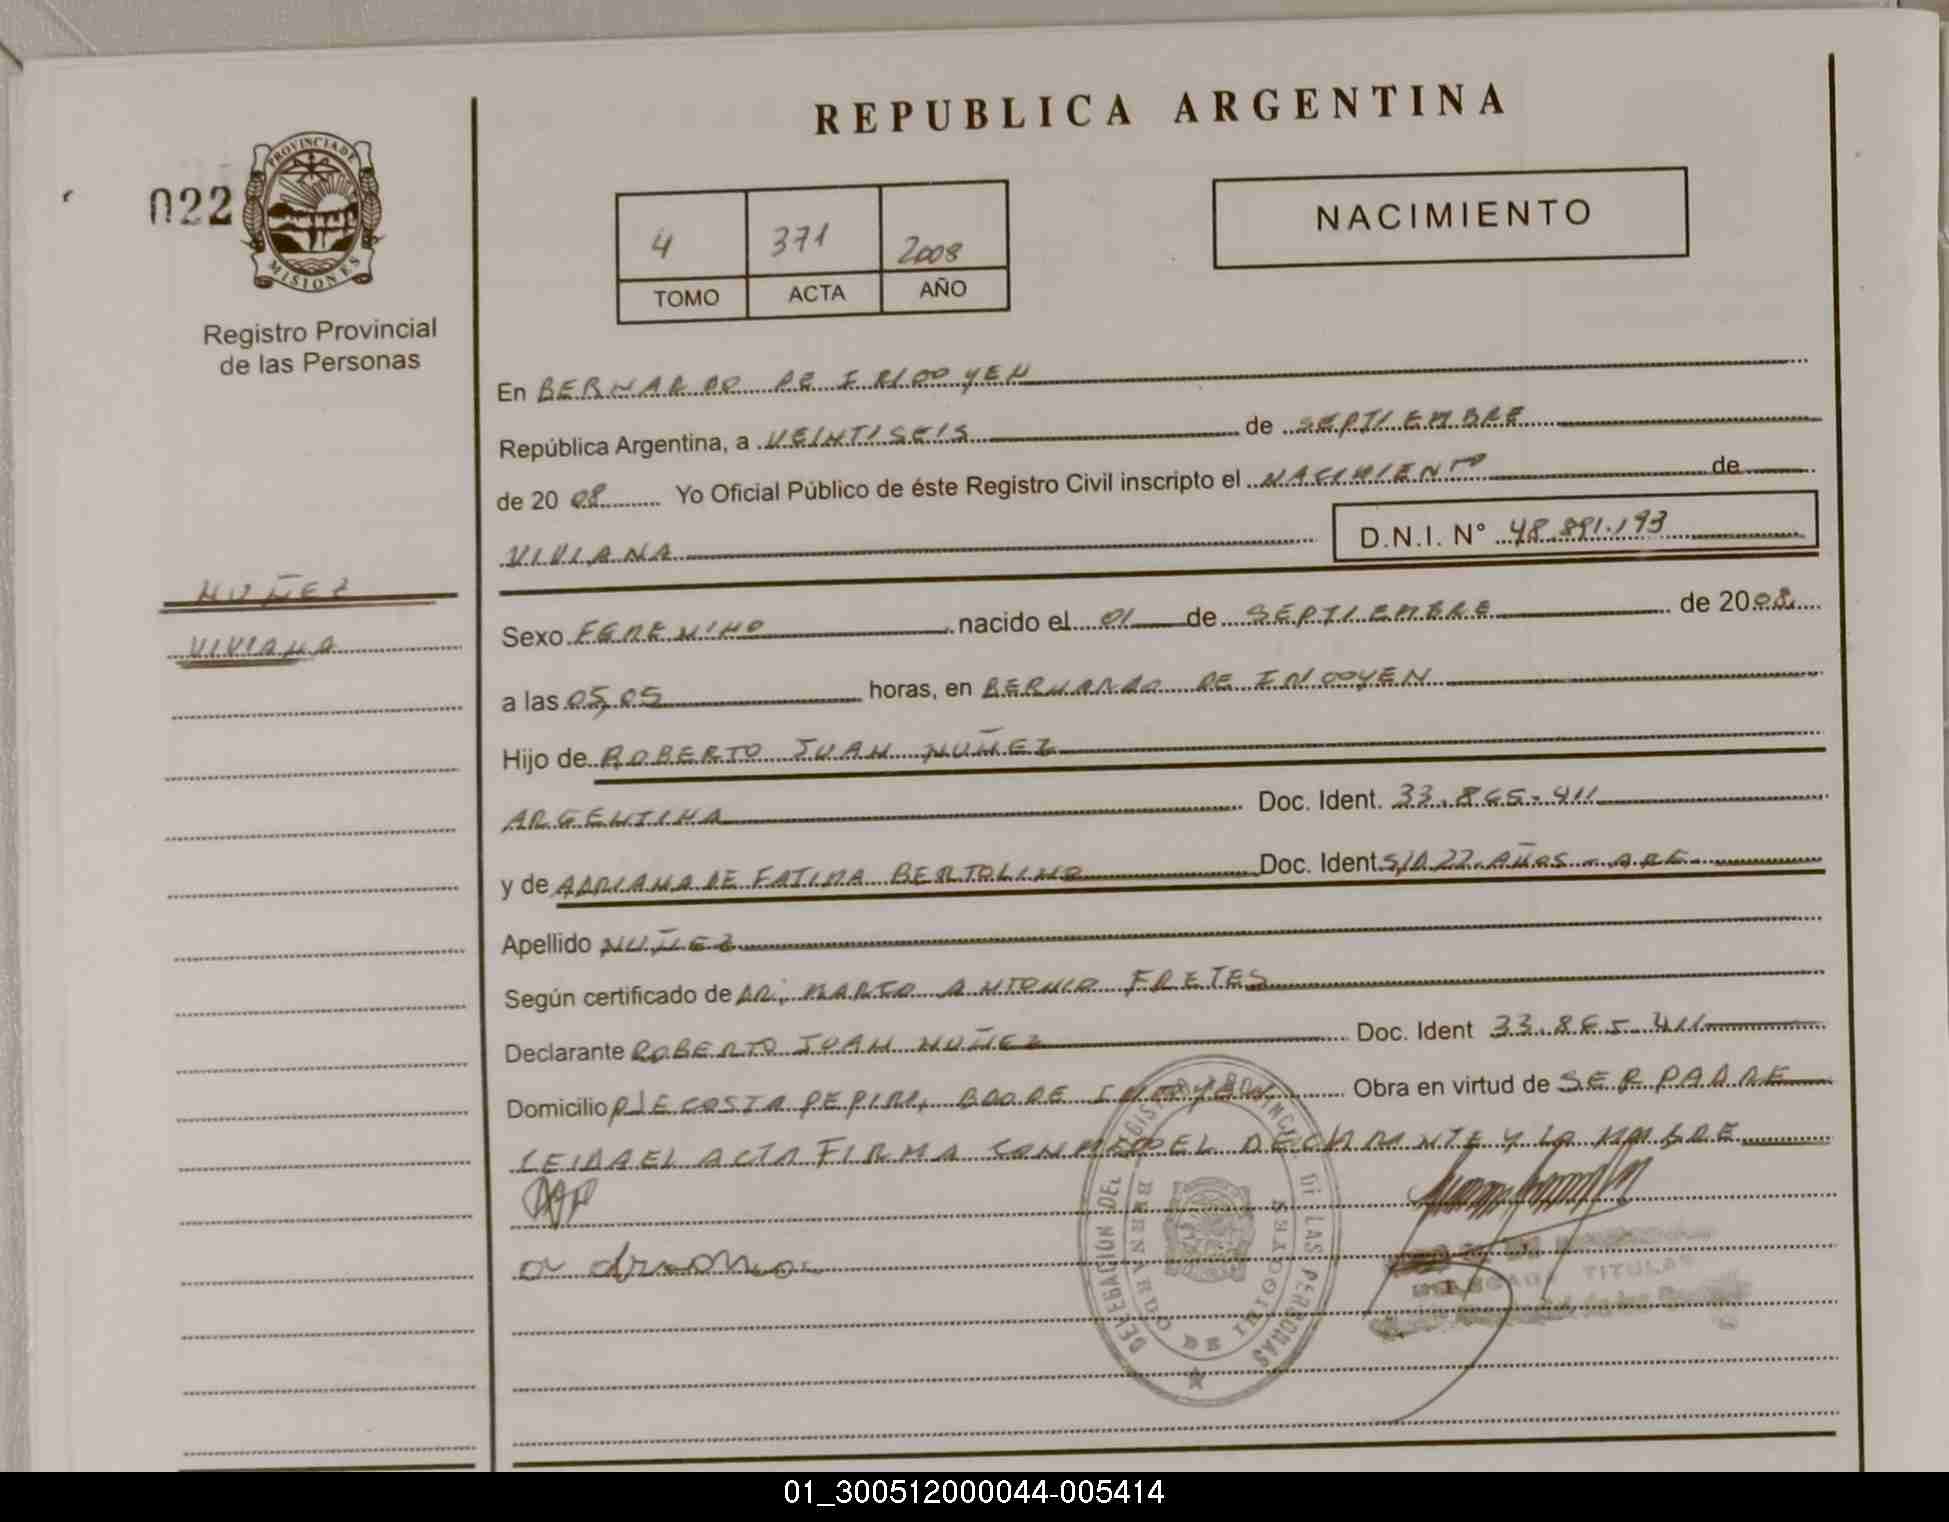 REPUBLICA ARGENTINA
022
PROVINCIA DE
MISIONES
Registro Provincial
de las Personas
4 371 2008
TOMO ACTA AÑO
NACIMIENTO
En BERNARDO DE IRIGOYEN
República Argentina, a VEINTISEIS de SEPTIEMBRE
de 2008 Yo Oficial Público de éste Registro Civil inscripto el NACIMIENTO de
VIVIANA D.N.I. N° 48.891.193
NUÑEZ
VIVIANA
Sexo FEMENINO nacido el 01 de SEPTIEMBRE de 2008
a las 05,05 horas, en BERNARDO DE IRIGOYEN
Hijo de ROBERTO JUAN NUÑEZ
ARGENTINA Doc. Ident. 33.865.411
y de ADRIANA DE FATIMA BERTOLINO Doc. Ident S/D 22 AÑOS - ARG
Apellido NUÑEZ
Según certificado de DR. MARIO ANTONIO FRETES
Declarante ROBERTO JUAN NUÑEZ Doc. Ident 33.865.411
Domicilio PJE COSTA PEPIRI, BDO DE IRIGOYEN Obra en virtud de SER PADRE
LEIDA EL ACTA FIRMA CONMIGO EL DECLARANTE Y LA MADRE
DELEGACIÓN DEL REGISTRO PROVINCIAL DE LAS PERSONAS
BERNARDO DE IRIGOYEN
TITULAR
01_300512000044-005414